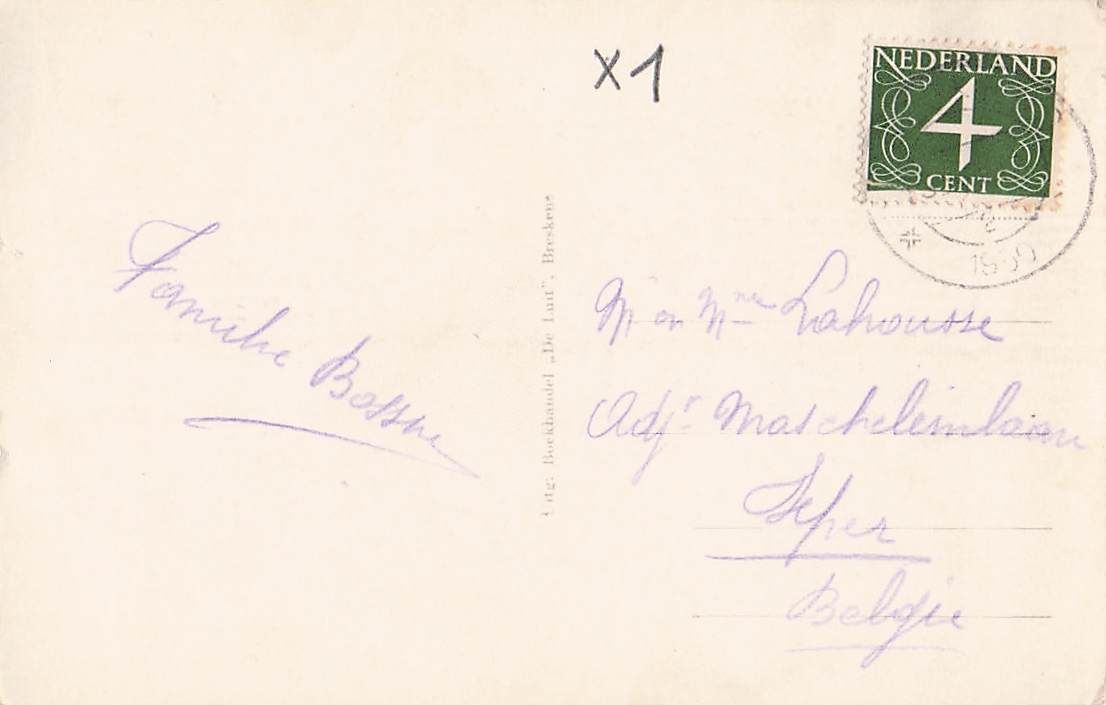 X1
NEDERLAND
4
CENT
Familie Bossu
Uitg. Boekhandel „De Luut", Breskens
M en Mme Lahousse
Adjt Mascheleinlaan
Ieper
België